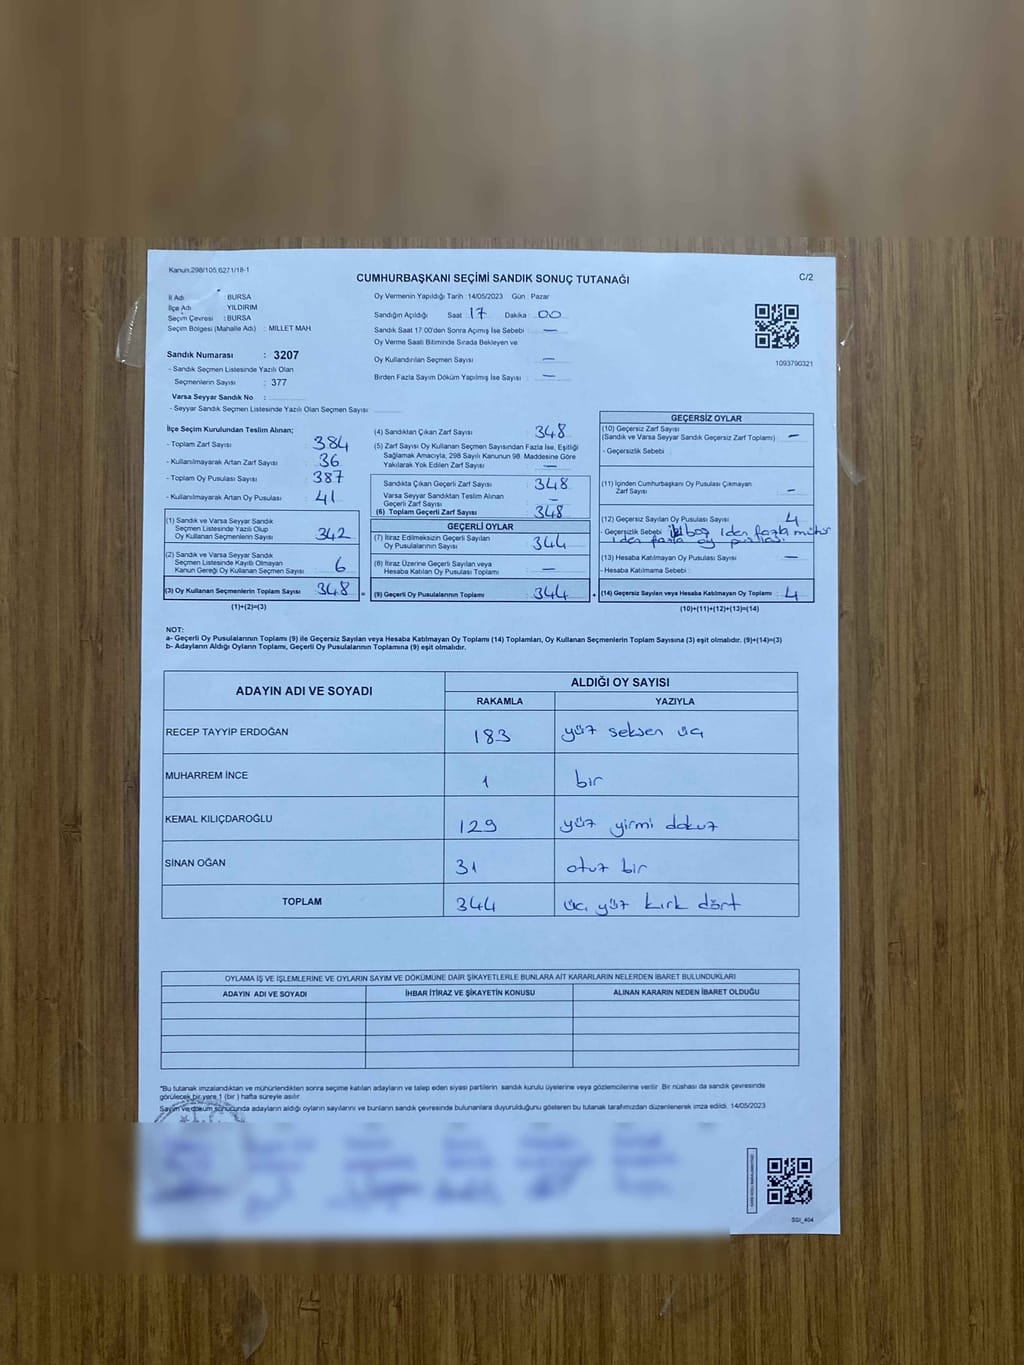 Kanun.298/105,6271/18-1
CUMHURBAŞKANI SEÇİMİ SANDIK SONUÇ TUTANAĞI
C/2
İl Adı : BURSA
İlçe Adı : YILDIRIM
Seçim Çevresi : BURSA
Seçim Bölgesi (Mahalle Adı) : MİLLET MAH.
Sandık Numarası : 3207
- Sandık Seçmen Listesinde Yazılı Olan
Seçmenlerin Sayısı : 377
Varsa Seyyar Sandık No :
- Seyyar Sandık Seçmen Listesinde Yazılı Olan Seçmen Sayısı:
Oy Vermenin Yapıldığı Tarih :14/05/2023 Gün : Pazar
Sandığın Açıldığı Saat : 17 Dakika : 00
Sandık Saat 17.00'den Sonra Açımış İse Sebebi : —
Oy Verme Saati Bitiminde Sırada Bekleyen ve
Oy Kullandırılan Seçmen Sayısı : —
Birden Fazla Sayım Döküm Yapılmış İse Sayısı : —
1093790321
İlçe Seçim Kurulundan Teslim Alınan;
- Toplam Zarf Sayısı : 384
- Kullanılmayarak Artan Zarf Sayısı : 36
- Toplam Oy Pusulası Sayısı : 387
- Kullanılmayarak Artan Oy Pusulası : 41
(1) Sandık ve Varsa Seyyar Sandık
Seçmen Listesinde Yazılı Olup
Oy Kullanan Seçmenlerin Sayısı : 342
(2) Sandık ve Varsa Seyyar Sandık
Seçmen Listesinde Kayıtlı Olmayan
Kanun Gereği Oy Kullanan Seçmen Sayısı : 6
(3) Oy Kullanan Seçmenlerin Toplam Sayısı : 348
(1)+(2)=(3)
(4) Sandıktan Çıkan Zarf Sayısı : 348
(5) Zarf Sayısı Oy Kullanan Seçmen Sayısından Fazla İse, Eşitliği
Sağlamak Amacıyla, 298 Sayılı Kanunun 98. Maddesine Göre
Yakılarak Yok Edilen Zarf Sayısı : —
Sandıkta Çıkan Geçerli Zarf Sayısı : 348
Varsa Seyyar Sandıktan Teslim Alınan
Geçerli Zarf Sayısı : —
(6) Toplam Geçerli Zarf Sayısı : 348
GEÇERLİ OYLAR
(7) İtiraz Edilmeksizin Geçerli Sayılan
Oy Pusulalarının Sayısı : 344
(8) İtiraz Üzerine Geçerli Sayılan veya
Hesaba Katılan Oy Pusulası Toplamı : —
= (9) Geçerli Oy Pusulalarının Toplamı : 344
GEÇERSİZ OYLAR
(10) Geçersiz Zarf Sayısı
(Sandık ve Varsa Seyyar Sandık Geçersiz Zarf Toplamı) : —
- Geçersizlik Sebebi :
(11) İçinden Cumhurbaşkanı Oy Pusulası Çıkmayan
Zarf Sayısı : —
(12) Geçersiz Sayılan Oy Pusulası Sayısı : 4
- Geçersizlik Sebebi : boş 1den fazla mühür
1den fazla oy pusulası
(13) Hesaba Katılmayan Oy Pusulası Sayısı : —
- Hesaba Katılmama Sebebi :
+ (14) Geçersiz Sayılan veya Hesaba Katılmayan Oy Toplamı : 4
(10)+(11)+(12)+(13)=(14)
NOT:
a- Geçerli Oy Pusulalarının Toplamı (9) ile Geçersiz Sayılan veya Hesaba Katılmayan Oy Toplamı (14) Toplamları, Oy Kullanan Seçmenlerin Toplam Sayısına (3) eşit olmalıdır. (9)+(14)=(3)
b- Adayların Aldığı Oyların Toplamı, Geçerli Oy Pusulalarının Toplamına (9) eşit olmalıdır.
ADAYIN ADI VE SOYADI
ALDIĞI OY SAYISI
RAKAMLA YAZIYLA
RECEP TAYYİP ERDOĞAN 183 yüz seksen üç
MUHARREM İNCE 1 bir
KEMAL KILIÇDAROĞLU 129 yüz yirmi dokuz
SİNAN OĞAN 31 otuz bir
TOPLAM 344 üç yüz kırk dört
OYLAMA İŞ VE İŞLEMLERİNE VE OYLARIN SAYIM VE DÖKÜMÜNE DAİR ŞİKAYETLERLE BUNLARA AİT KARARLARIN NELERDEN İBARET BULUNDUKLARI
ADAYIN ADI VE SOYADI İHBAR İTİRAZ VE ŞİKAYETİN KONUSU ALINAN KARARIN NEDEN İBARET OLDUĞU
*Bu tutanak imzalandıktan ve mühürlendikten sonra seçime katılan adayların ve talep eden siyasi partilerin sandık kurulu üyelerine veya gözlemcilerine verilir. Bir nüshası da sandık çevresinde
görülecek bir yere 1 (bir ) hafta süreyle asılır.
Sayım ve döküm sonucunda adayların aldığı oyların sayılarını ve bunların sandık çevresinde bulunanlara duyurulduğunu gösteren bu tutanak tarafımızdan düzenlenerek imza edildi. 14/05/2023
SSI_404